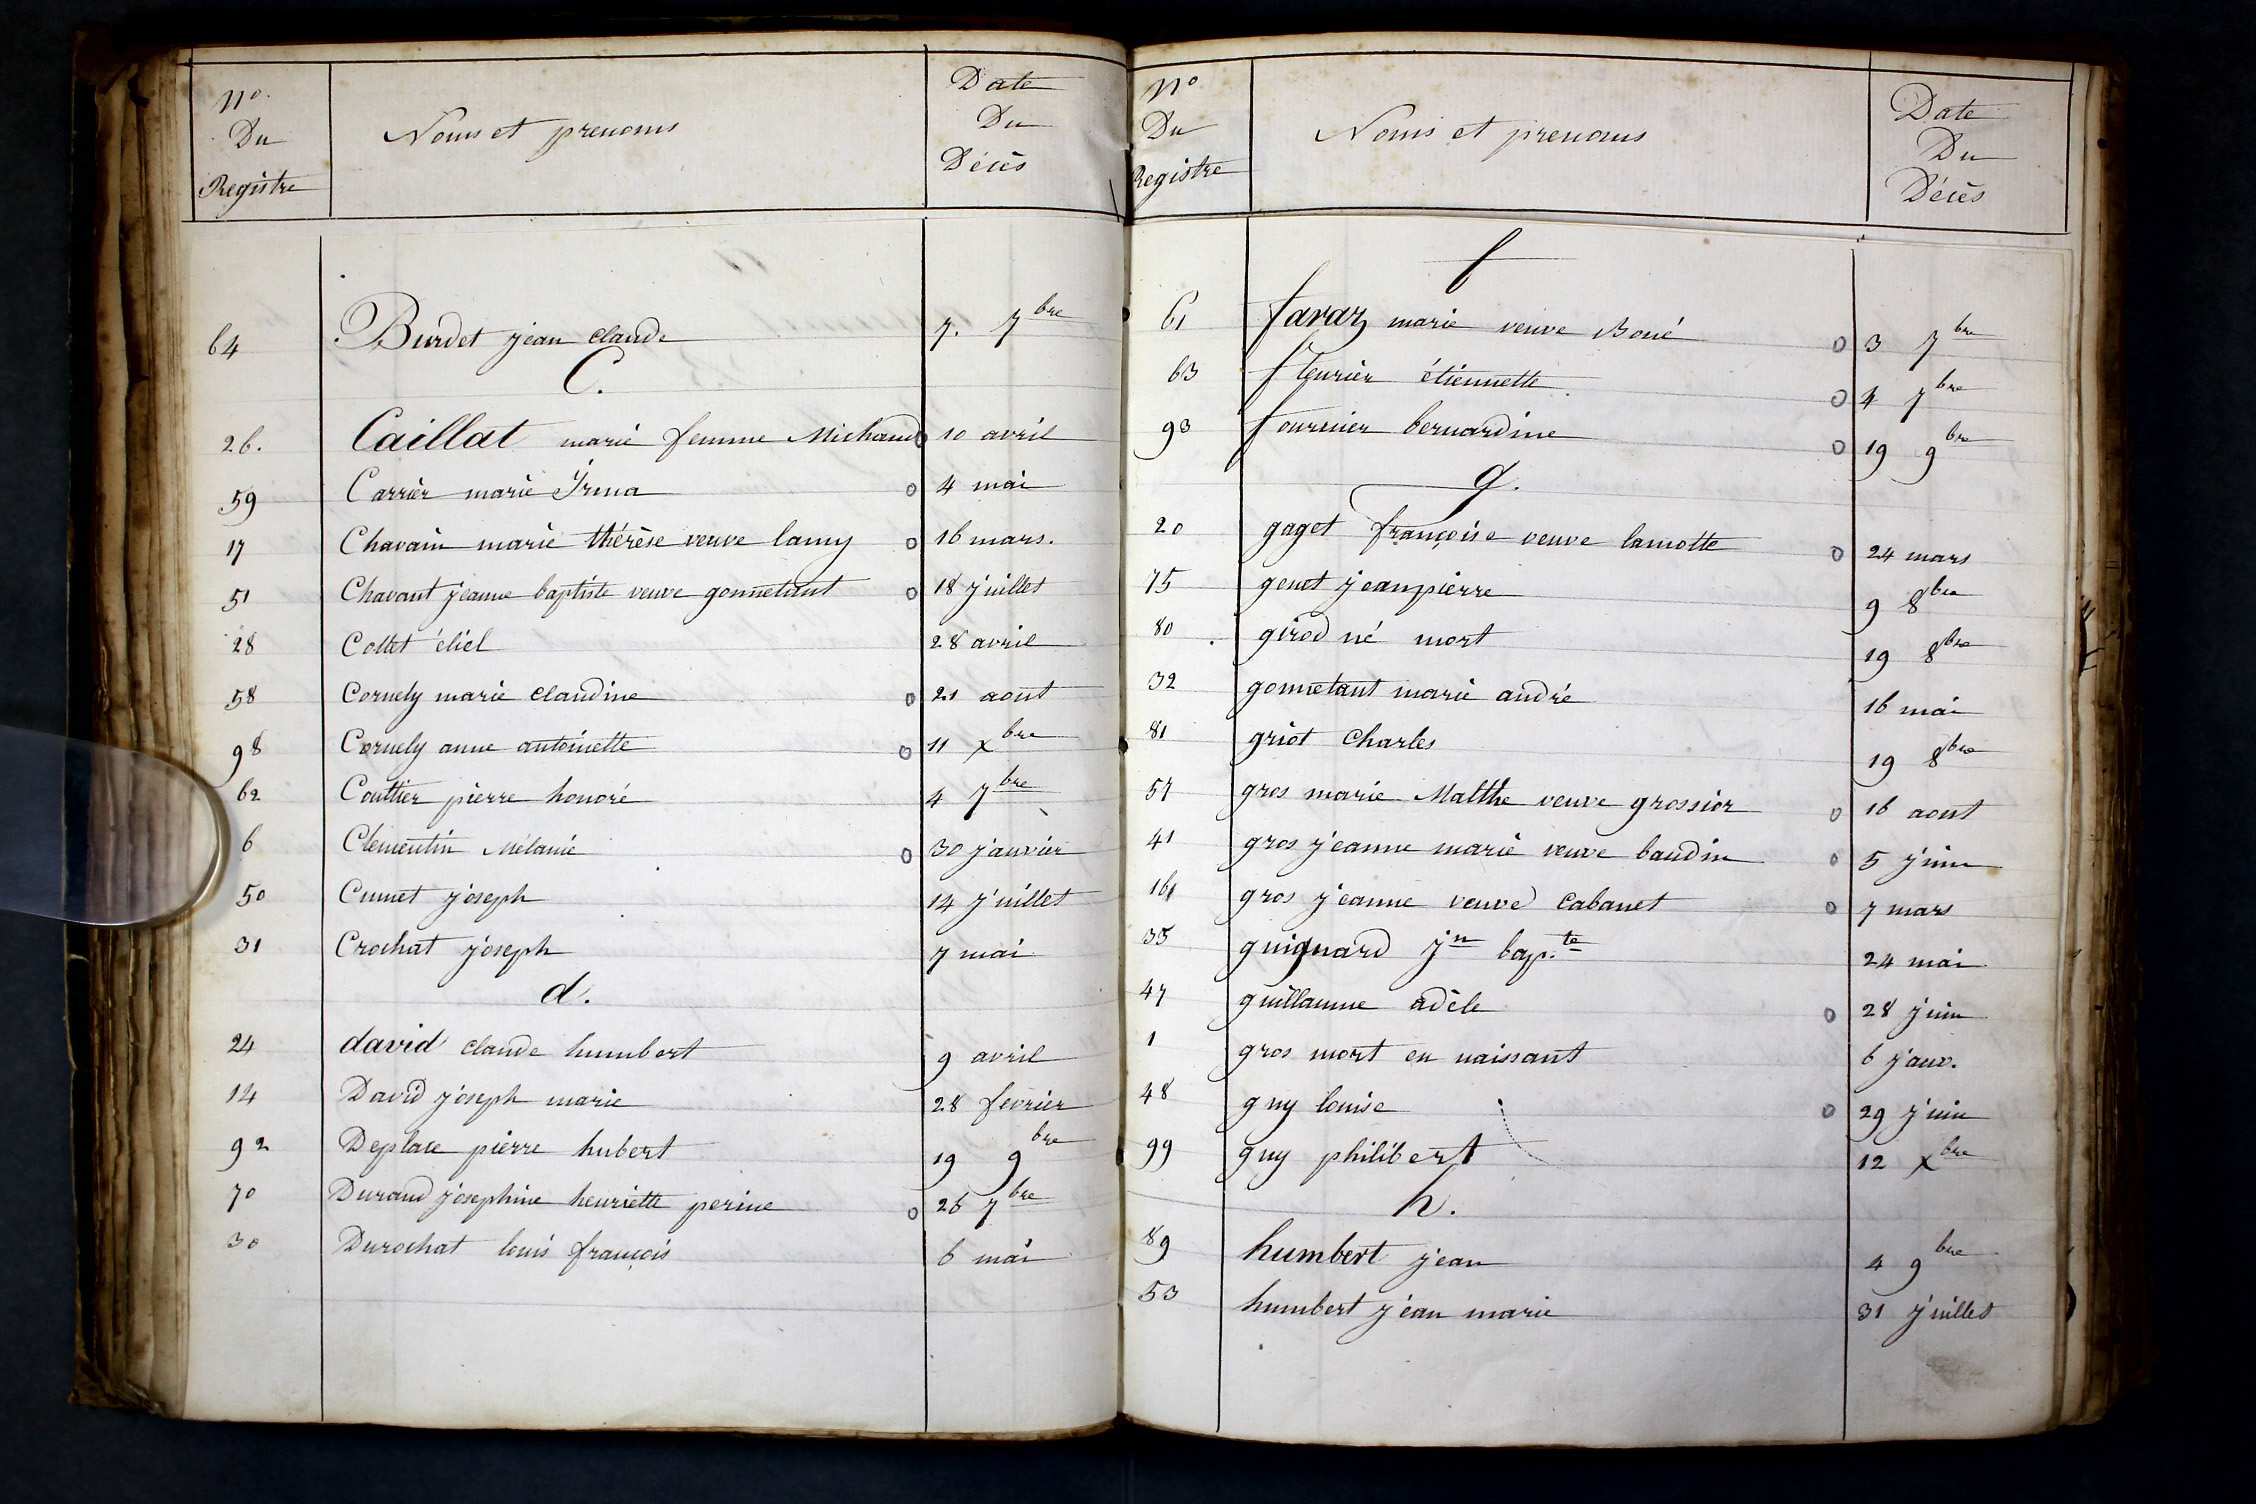 No Du Registre Noms et prenoms Date Du Décès
64 Burdet jean claude 7. 7bre
C.
26. Caillat marie femme Michaud 10 avril
59 Carrier marie Irma o 4 mai
17 Chavain marie thérèse veuve lamy o 16 mars.
51 Chavant jeanne baptiste veuve gonnetant o 18 juillet
28 Collet éliel 28 avril
58 Cornely marie claudine o 21 aout
98 Cornely anne antoinette o 11 xbre
62 Couttier pierre honoré 4 7bre
6 Clementin Mélanie o 30 janvier
50 Cunet joseph 14 juillet
31 Crochat joseph 7 mai
d.
24 david claude humbert 9 avril
14 David joseph marie 28 fevrier
92 Deplace pierre hubert 19 9bre
70 Durand josephine henriette perine o 26 7bre
30 Durochat louis françois 6 mai
No Du Registre Noms et prenoms Date Du Décès
f
61 favaz marie veuve Boué o 3 7bre
63 fleurier étiennette o 4 7bre
93 fournier bernardine o 19 9bre
g.
20 gaget françoise veuve lamotte o 24 mars
75 genet jean pierre 9 8bre
80 girod né mort 19 8bre
32 gonnetant marie andré 16 mai
81 griot Charles 19 8bre
57 gros marie Malthe veuve grossior o 16 aout
41 gros jeanne marie veuve baudin o 5 juin
16 gros jeanne veuve Cabanet o 7 mars
35 guignard jn bap.te 24 mai
47 guillaume adèle o 28 juin
1 gros mort en naissant 6 janv.
48 guy louise o 29 juin
99 guy philibert 12 xbre
h.
89 humbert jean 4 9bre
53 humbert jean marie 31 juillet